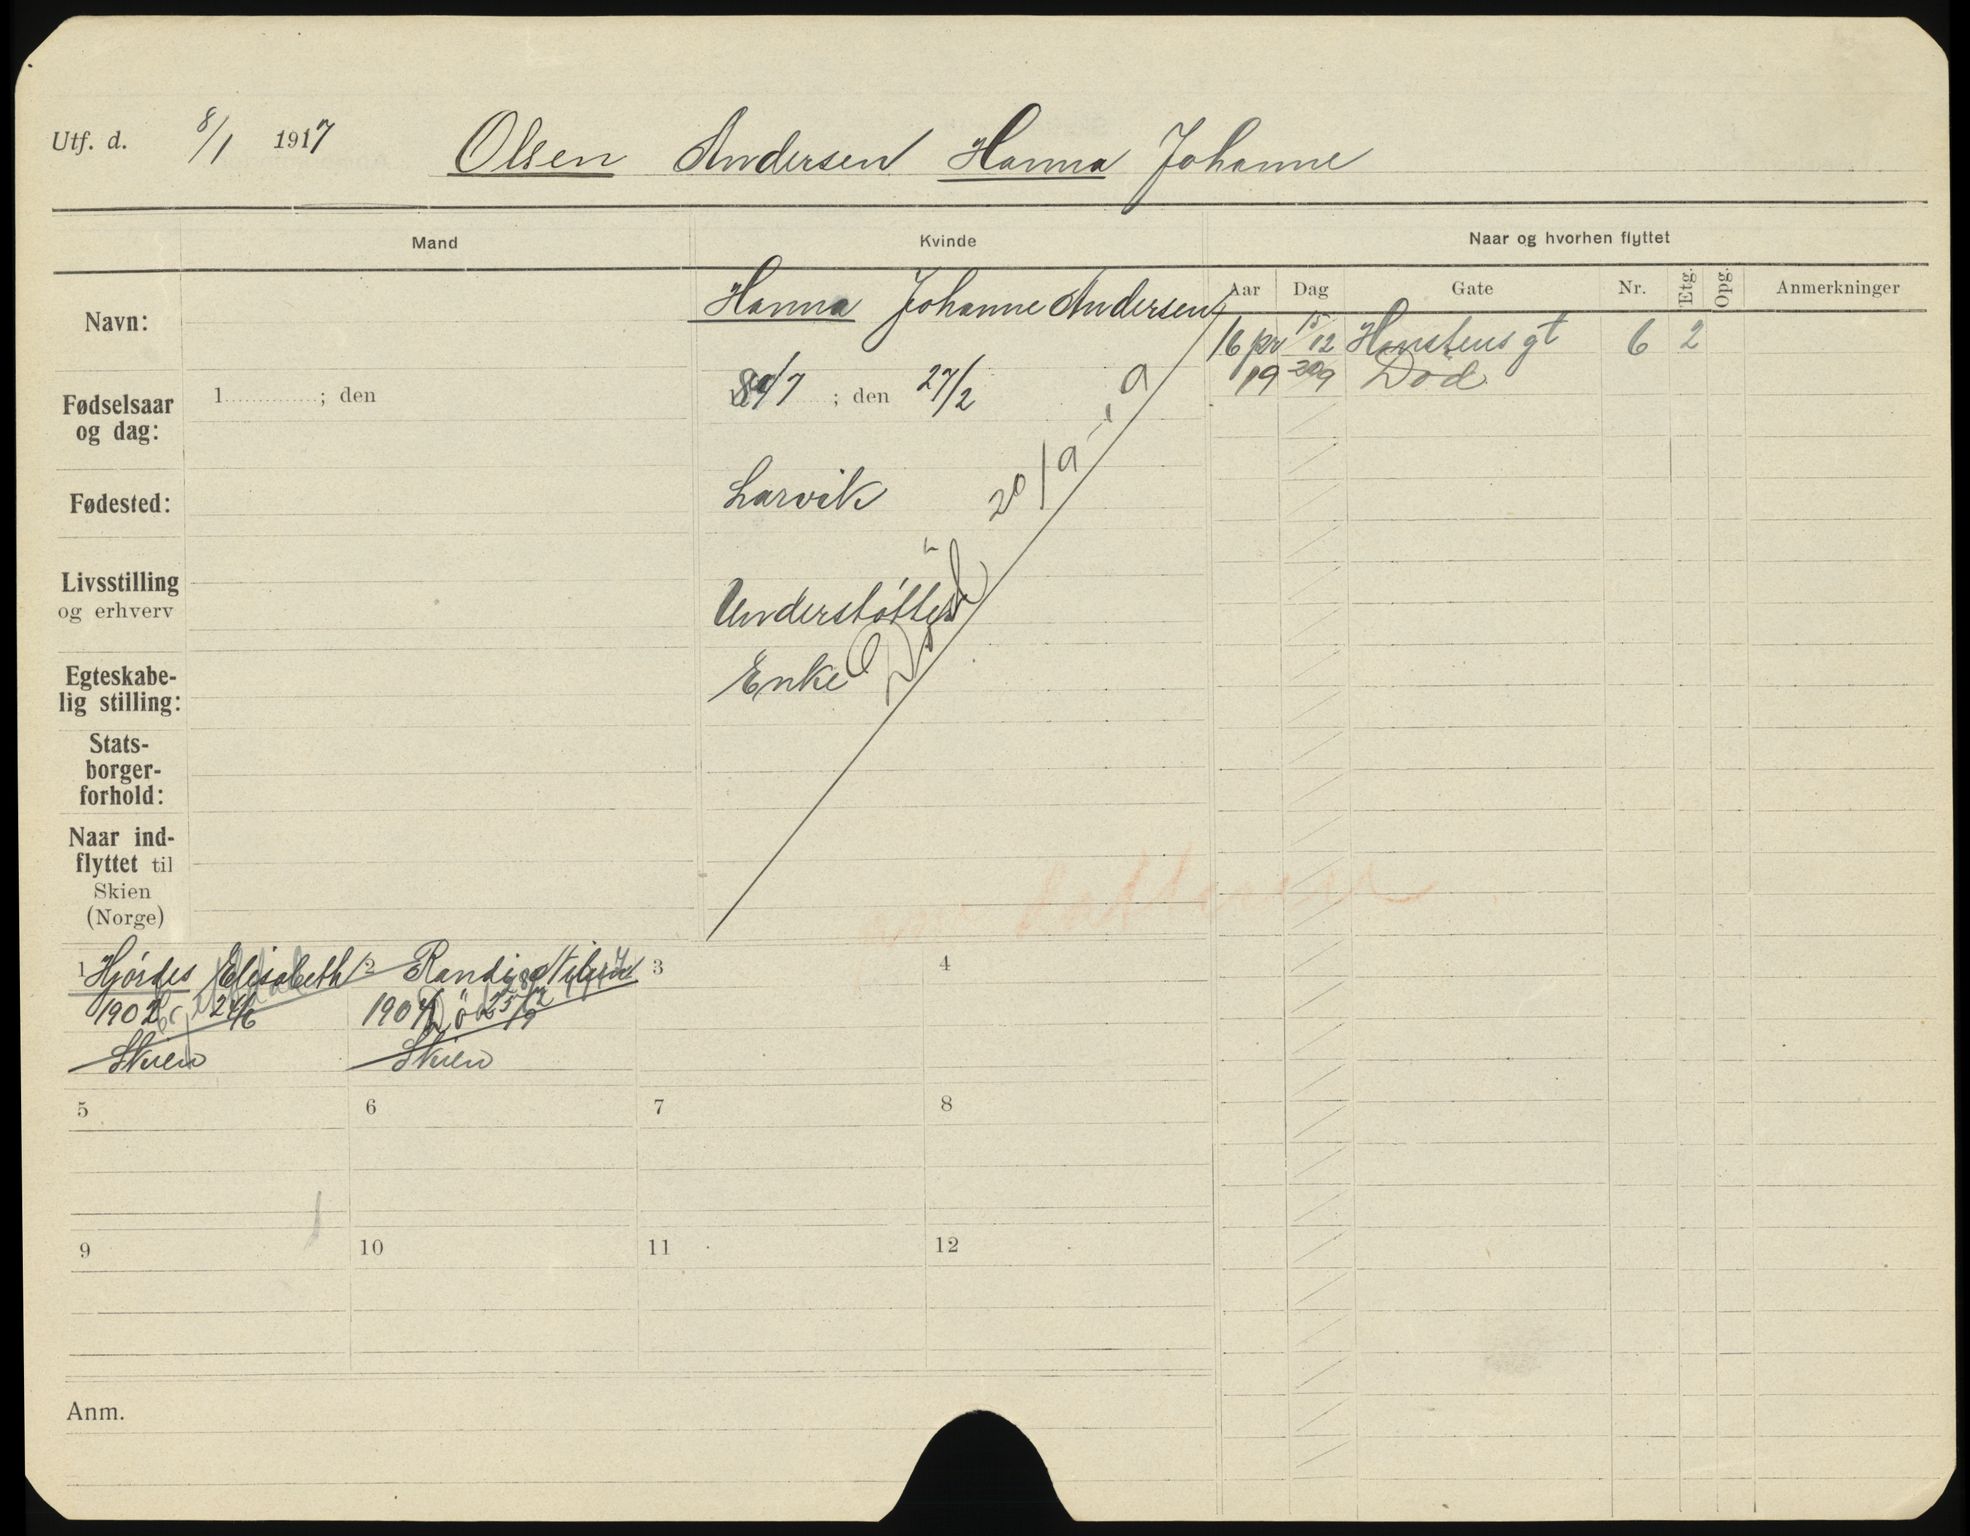 Utf. d. 8/1 1917 Olsen Andersen Hanna Johanne
Mand Kvinde Naar og hvorhen flyttet
Aar Dag Gate Nr. Etg. Opg. Anmerkninger
Navn: Hanna Johanne Andersen
16 pr 15/12 Hanstens gt 6 2
19 20/9 Død
Fødselsaar og dag: 1 ; den ; den 27/2
Fødested: Larvik
20/9-19
Død
Livsstilling og erhverv Understøttes
Egteskabe-
lig stilling: Enke
Stats-
borger-
forhold:
Naar ind-
flyttet til
Skien
(Norge)
datteren
1 Hjørdes Elisabeth 2 Randi 3 4
1902 24/6 Død
Skien Skien
5 6 7 8
9 10 11 12
Anm.